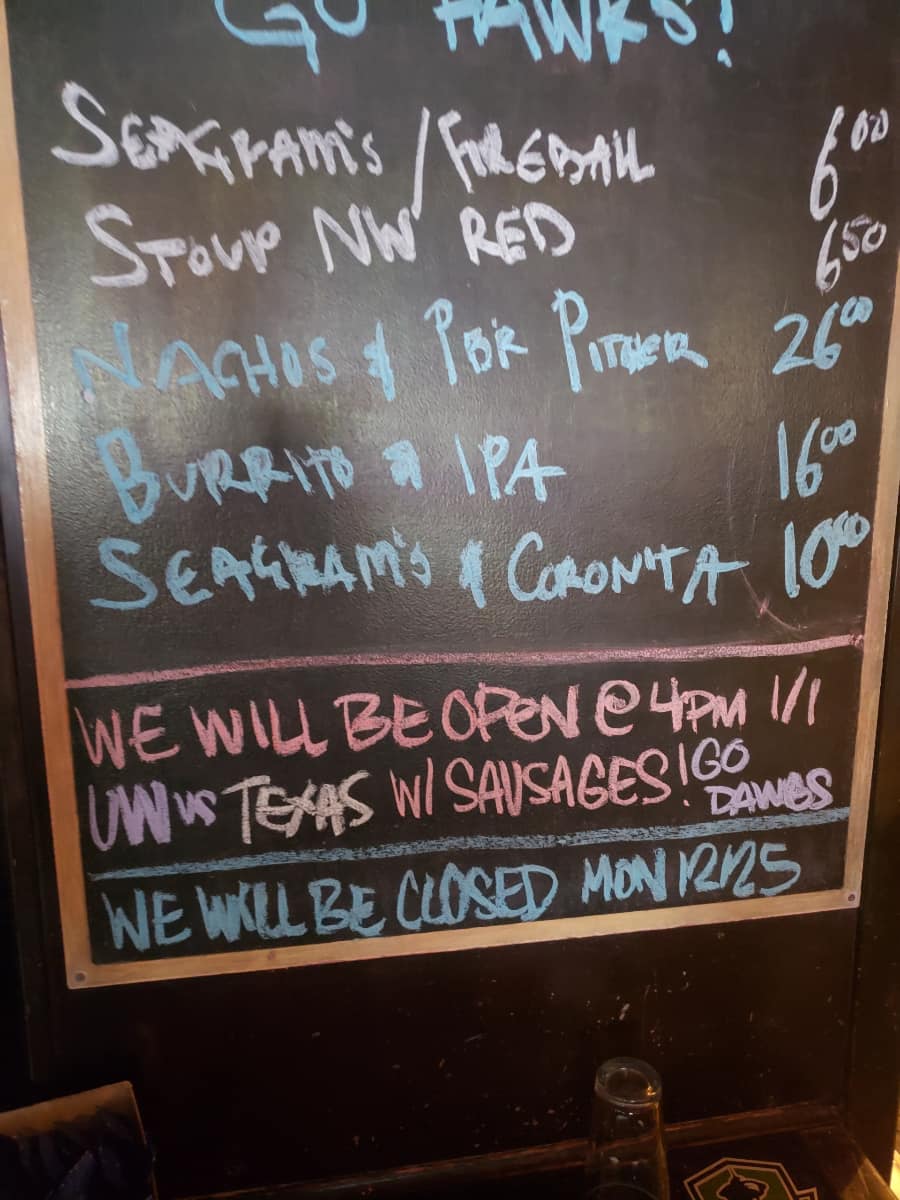 GO HAWKS!
SEAGRAM'S / FIREBALL 6.00
STOUP NW RED 6.50
NACHOS & PBR PITCHER 26.00
BURRITO & IPA 16.00
SEAGRAM'S & CORONITA 10.00
WE WILL BE OPEN @ 4PM 1/1
UW vs TEXAS W/ SAUSAGES! GO DAWGS
WE WILL BE CLOSED MON 12/25